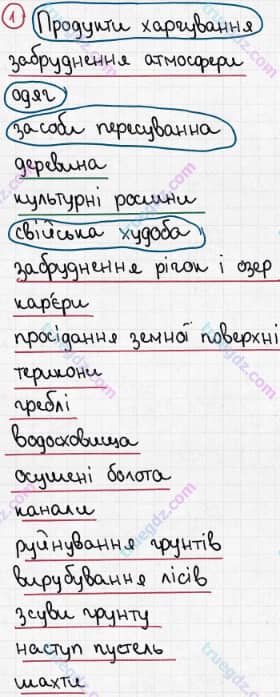 1 Продукти харчування
забруднення атмосфери
одяг
засоби пересування
деревина
культурні рослини
свійська худоба
забруднення річок і озер
кар'єри
просідання земної поверхні
терикони
греблі
водосховища
осушені болота
канали
руйнування грунтів
вирубування лісів
зсуви грунту
наступ пустель
шахти
truegdz.com